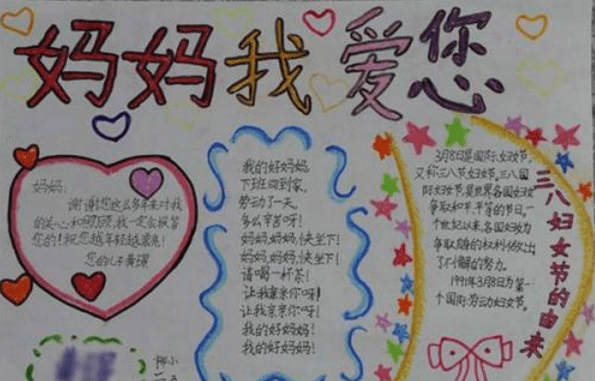 妈妈我爱您
妈妈:
谢谢您这么多年来对我
的关心和照顾,我一定会报答
您的!祝您越年轻越漂亮!
您的儿子黄璟
我的好妈妈,
下班回到家,
劳动了一天,
多么辛苦呀!
妈妈,妈妈,快坐下!
妈妈,妈妈,快坐下!
请喝一杯茶!
让我亲亲你呀!
让我亲亲你呀!
我的好妈妈!
我的好妈妈!
三八妇女节的由来
3月8日是国际妇女节,
又称三八节妇女节。三八国
际妇女节是世界各国妇女
争取和平、平等的节日。一
个世纪以来,各国妇女为
争取她的权利做出
了不懈的努力。
1991年3月8日为第一
个国际劳动妇女节。